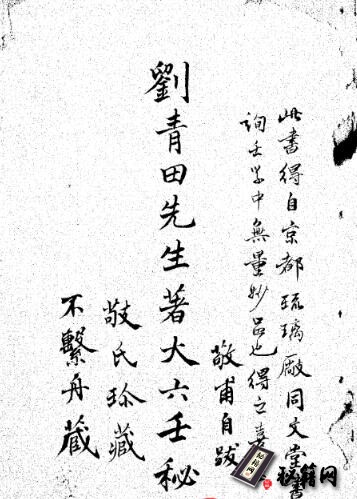 此書得自京都琉璃廠同文堂書
詢壬學中無量妙品也得之喜
敬甫自跋
劉青田先生著大六壬秘
敬氏珍藏
不繫舟藏
秘籍网